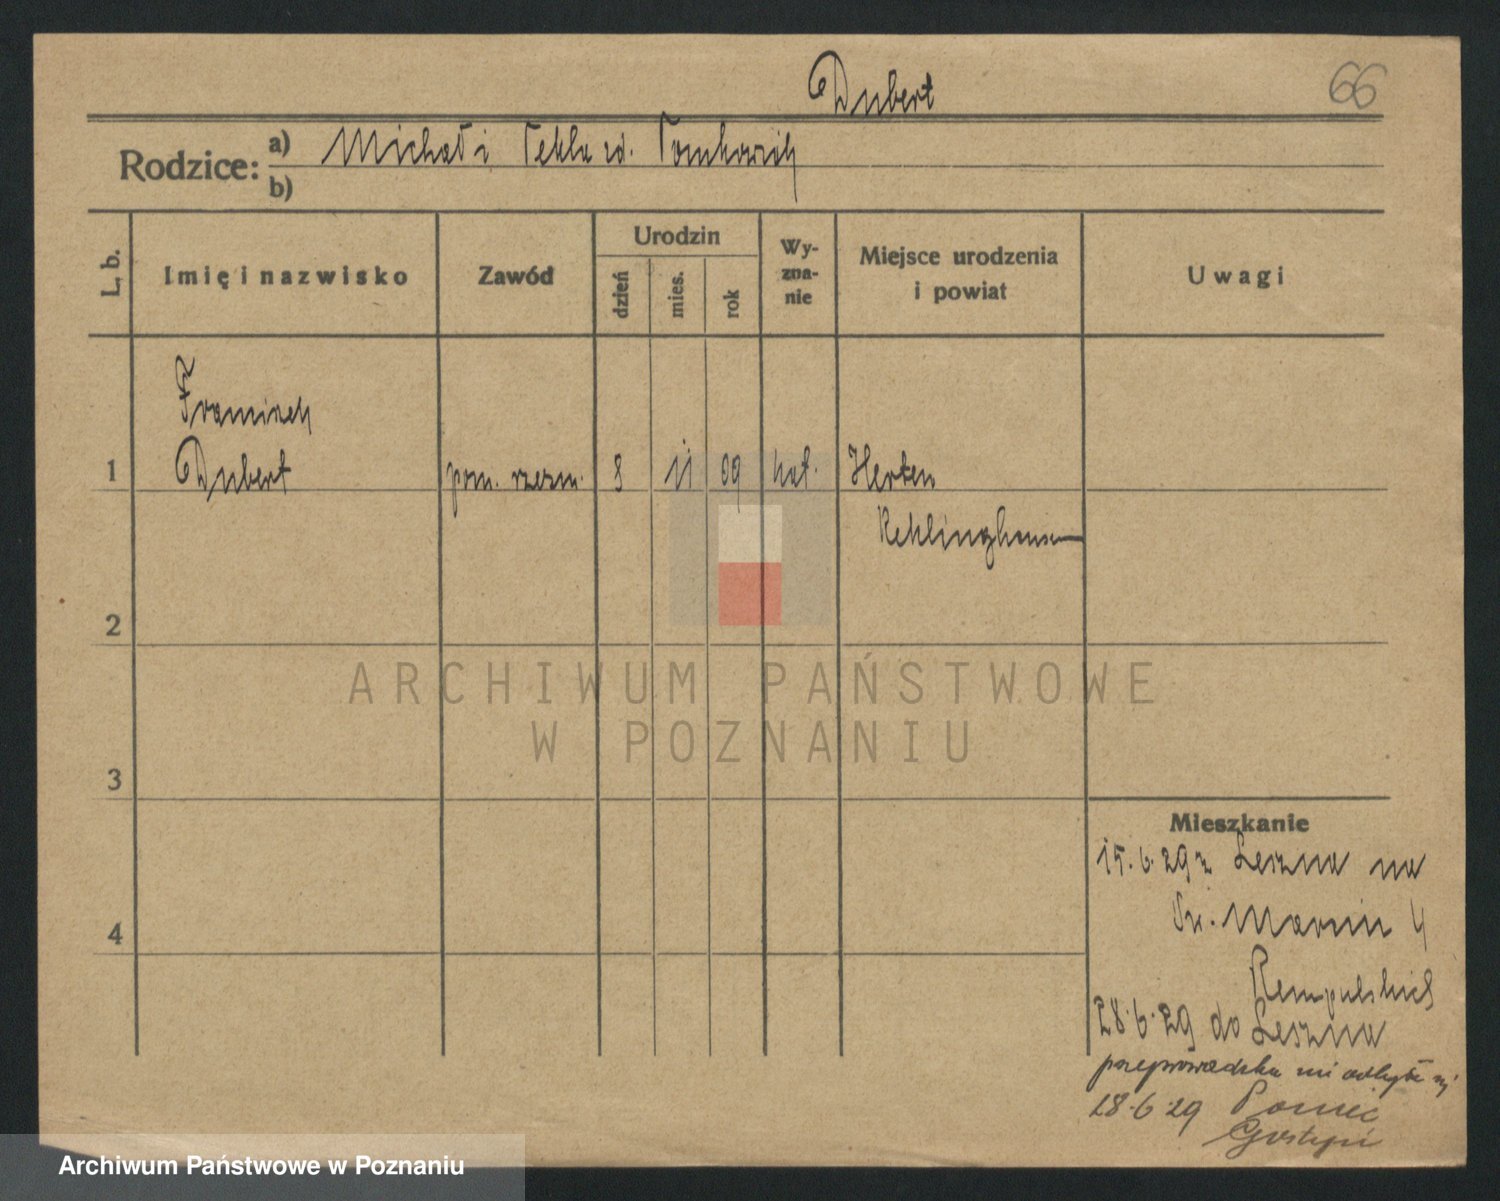 Dubert
66
Rodzice: a) Michał i Tekla zd. Tomkowich
b)
L. b.
Imię i nazwisko
Zawód
Urodzin
dzień
mies.
rok
Wy-
zna-
nie
Miejsce urodzenia
i powiat
Uwagi
Franciszek
1 Dubert pom. rzezn. 8 11 09 kat. Herten
Recklinghausen
2
3
4
Mieszkanie
15.6.29 z Leszna na
Św. Marcin 4
28.6.29 do Leszna
przeprowadzka nie odbyła się
28.6.29 Poniec
Gostyń
ARCHIWUM PAŃSTWOWE
W POZNANIU
Archiwum Państwowe w Poznaniu